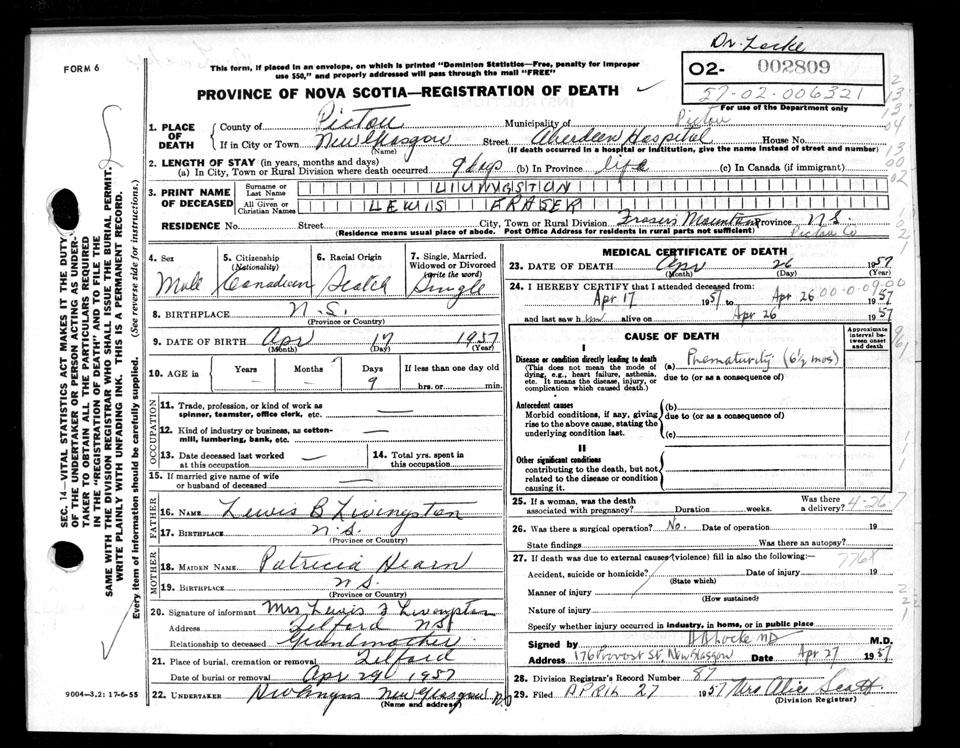 Dr. Locke
FORM 6
This form, if placed in an envelope, on which is printed "Dominion Statistics—Free, penalty for improper
use $50," and properly addressed will pass through the mail "FREE"
O2- 002809
57-02-006321
For use of the Department only
PROVINCE OF NOVA SCOTIA—REGISTRATION OF DEATH
1. PLACE OF DEATH County of Pictou Municipality of Pictou
If in City or Town New Glasgow Street Aberdeen Hospital House No.
(Name) (If death occurred in a hospital or institution, give the name instead of street and number)
2. LENGTH OF STAY (in years, months and days)
(a) In City, Town or Rural Division where death occurred 9 days (b) In Province life (c) In Canada (if immigrant)
3. PRINT NAME OF DECEASED Surname or Last Name LIVINGSTON
All Given or Christian Names LEWIS FRASER
RESIDENCE No. Street City, Town or Rural Division Frasers Mountain Province N.S.
(Residence means usual place of abode. Post Office Address for residents in rural parts not sufficient) Pictou Co
4. Sex Male
5. Citizenship (Nationality) Canadian
6. Racial Origin Scotch
7. Single, Married, Widowed or Divorced (write the word) Single
8. BIRTHPLACE N.S.
(Province or Country)
9. DATE OF BIRTH Apr 17 1957
(Month) (Day) (Year)
10. AGE in Years Months Days If less than one day old
— — 9 hrs. or min.
OCCUPATION
11. Trade, profession, or kind of work as spinner, teamster, office clerk, etc. —
12. Kind of industry or business, as cotton-mill, lumbering, bank, etc. —
13. Date deceased last worked at this occupation —
14. Total yrs. spent in this occupation —
15. If married give name of wife or husband of deceased —
FATHER
16. NAME Lewis B Livingston
17. BIRTHPLACE N.S.
(Province or Country)
MOTHER
18. MAIDEN NAME Patricia Hearn
19. BIRTHPLACE N.S.
(Province or Country)
20. Signature of informant Mrs Lewis F Livingston
Address Telford NS
Relationship to deceased Grandmother
21. Place of burial, cremation or removal Telford
Date of burial or removal Apr 29 1957
22. UNDERTAKER New Glasgow N.S
(Name and address)
MEDICAL CERTIFICATE OF DEATH
23. DATE OF DEATH Apr 26 1957
(Month) (Day) (Year)
24. I HEREBY CERTIFY that I attended deceased from:
Apr 17 1957 to Apr 26 1957
and last saw h alive on Apr 26 1957
CAUSE OF DEATH
Approximate interval between onset and death
I
Disease or condition directly leading to death
(This does not mean the mode of dying, e.g., heart failure, asthenia, etc. It means the disease, injury, or complication which caused death.)
(a) Prematurity (6½ mos)
due to (or as a consequence of)
Antecedent causes
Morbid conditions, if any, giving rise to the above cause, stating the underlying condition last.
(b)
due to (or as a consequence of)
(c)
II
Other significant conditions
contributing to the death, but not related to the disease or condition causing it.
25. If a woman, was the death associated with pregnancy? Duration weeks. Was there a delivery? 4-26-7
26. Was there a surgical operation? No. Date of operation 19
State findings Was there an autopsy?
27. If death was due to external causes (violence) fill in also the following:— 776X
Accident, suicide or homicide? Date of injury 19
(State which)
Manner of injury
(How sustained)
Nature of injury
Specify whether injury occurred in industry, in home, or in public place
Signed by Locke MD M.D.
Address 176 Provost St. New Glasgow Date Apr 27 1957
28. Division Registrar's Record Number 87
29. Filed APRIL 27 1957 Mrs Alice Scott
(Division Registrar)
9004-3,2: 17-6-55
SEC. 14—VITAL STATISTICS ACT MAKES IT THE DUTY
OF THE UNDERTAKER OR PERSON ACTING AS UNDER-
TAKER TO OBTAIN ALL THE PARTICULARS REQUIRED
IN THE "REGISTRATION OF DEATH" AND TO FILE THE
SAME WITH THE DIVISION REGISTRAR WHO SHALL ISSUE THE BURIAL PERMIT.
WRITE PLAINLY WITH UNFADING INK. THIS IS A PERMANENT RECORD.
Every item of information should be carefully supplied. (See reverse side for instructions.)